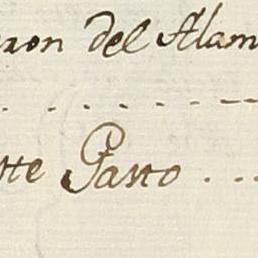 zon del Alam
tte Pasto